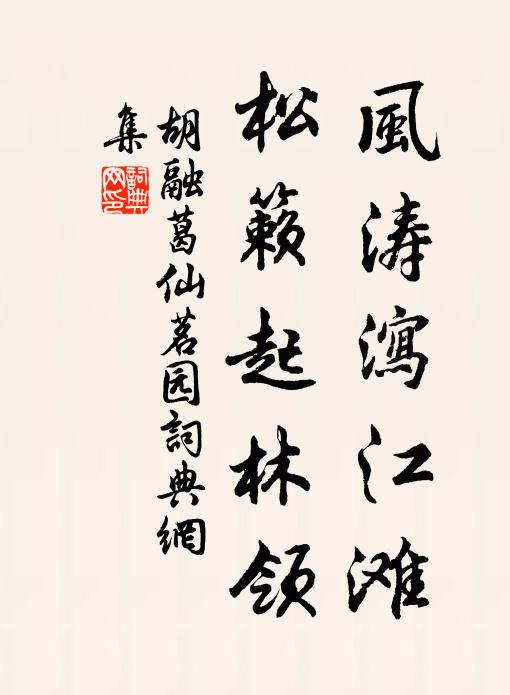 風涛瀉江滩
松籁起林领
胡融葛仙茗园詞典網
集
詞典
网印